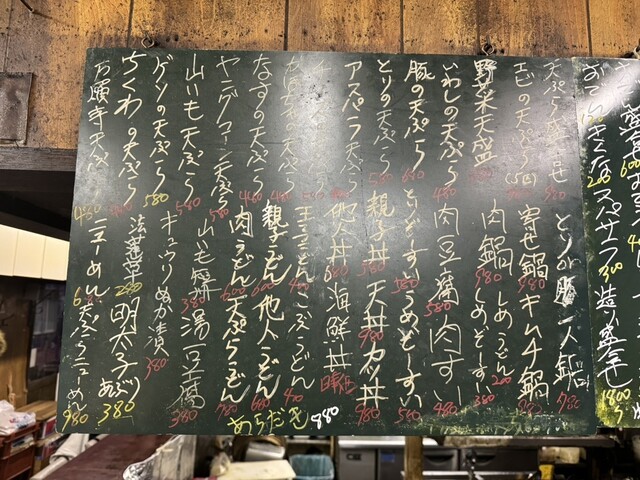 おでん きずし
スパサラ 300
造り盛合せ 1800
天ぷら盛合せ 980
とりか豚一人鍋 980
エビの天ぷら(5コ)
寄せ鍋 キムチ鍋
野菜天盛 580
肉鍋 980 しめうどん 200
いわしの天ぷら 480
しめぞーすい 380
肉豆腐 580 肉すい 480
豚の天ぷら 600
とりぞーすい 580 うめぞーすい 580
とりの天ぷら 580
親子丼 天丼 980 カツ丼 980
アスパラ天ぷら
他人丼 880 海鮮丼 時価
玉子うどん 400 こぶうどん 400
なすの天ぷら 460
親子うどん 600 他人うどん 660
ヤングコーン天ぷら 580
肉うどん 600 天ぷらうどん 780
山いも天ぷら 580
山いも短冊 380 湯豆腐 380
ゲソの天ぷら 580
キュウリぬか漬 380
ちくわの天ぷら
明太子あぶり 380
お願寺天ぷら 460
ニューめん 天ぷらニューめん 980
あらだき 880